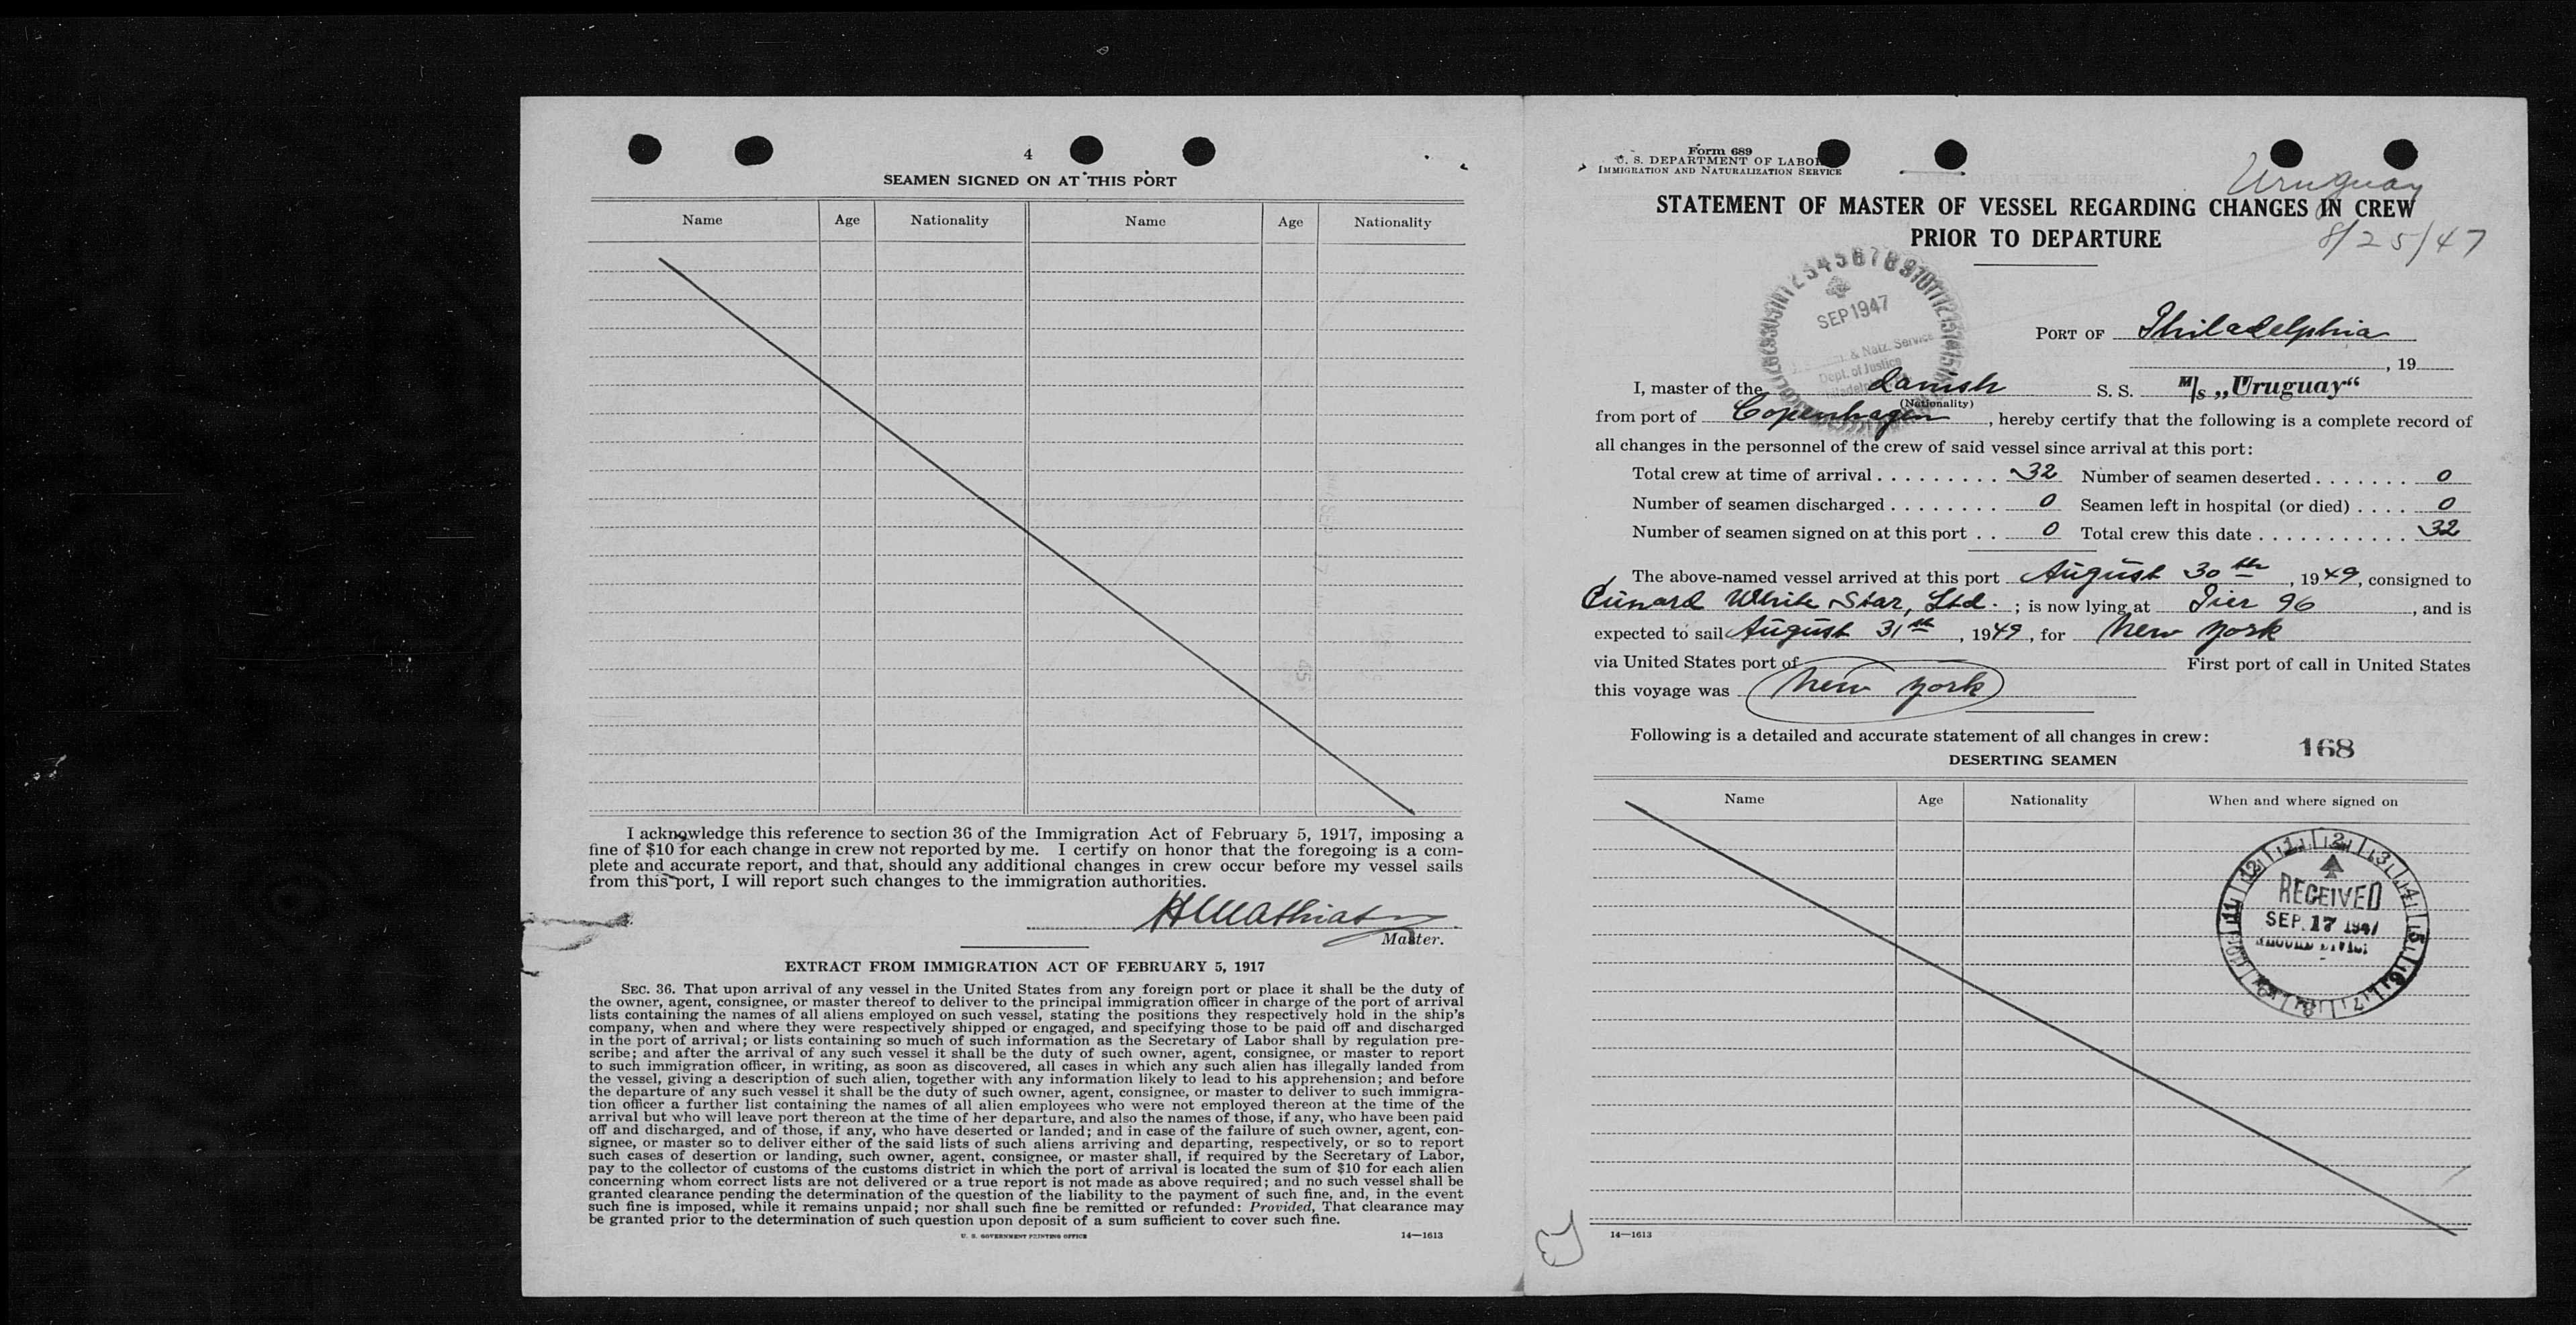 4
SEAMEN SIGNED ON AT THIS PORT
Name Age Nationality Name Age Nationality
I acknowledge this reference to section 36 of the Immigration Act of February 5, 1917, imposing a
fine of $10 for each change in crew not reported by me. I certify on honor that the foregoing is a com-
plete and accurate report, and that, should any additional changes in crew occur before my vessel sails
from this port, I will report such changes to the immigration authorities.
Master.
EXTRACT FROM IMMIGRATION ACT OF FEBRUARY 5, 1917
SEC. 36. That upon arrival of any vessel in the United States from any foreign port or place it shall be the duty of
the owner, agent, consignee, or master thereof to deliver to the principal immigration officer in charge of the port of arrival
lists containing the names of all aliens employed on such vessel, stating the positions they respectively hold in the ship's
company, when and where they were respectively shipped or engaged, and specifying those to be paid off and discharged
in the port of arrival; or lists containing so much of such information as the Secretary of Labor shall by regulation pre-
scribe; and after the arrival of any such vessel it shall be the duty of such owner, agent, consignee, or master to report
to such immigration officer, in writing, as soon as discovered, all cases in which any such alien has illegally landed from
the vessel, giving a description of such alien, together with any information likely to lead to his apprehension; and before
the departure of any such vessel it shall be the duty of such owner, agent, consignee, or master to deliver to such immigra-
tion officer a further list containing the names of all alien employees who were not employed thereon at the time of the
arrival but who will leave port thereon at the time of her departure, and also the names of those, if any, who have been paid
off and discharged, and of those, if any, who have deserted or landed; and in case of the failure of such owner, agent, con-
signee, or master so to deliver either of the said lists of such aliens arriving and departing, respectively, or so to report
such cases of desertion or landing, such owner, agent, consignee, or master shall, if required by the Secretary of Labor,
pay to the collector of customs of the customs district in which the port of arrival is located the sum of $10 for each alien
concerning whom correct lists are not delivered or a true report is not made as above required; and no such vessel shall be
granted clearance pending the determination of the question of the liability to the payment of such fine, and, in the event
such fine is imposed, while it remains unpaid; nor shall such fine be remitted or refunded: Provided, That clearance may
be granted prior to the determination of such question upon deposit of a sum sufficient to cover such fine.
U. S. GOVERNMENT PRINTING OFFICE 14—1613
Form 689
U. S. DEPARTMENT OF LABOR
IMMIGRATION AND NATURALIZATION SERVICE
Uruguay
STATEMENT OF MASTER OF VESSEL REGARDING CHANGES IN CREW
PRIOR TO DEPARTURE
8/25/47
SEP 1947
& Natz. Service
Dept. of Justice
PORT OF Philadelphia
, 19
I, master of the danish S. S. M/s „Uruguay“
(Nationality)
from port of Copenhagen, hereby certify that the following is a complete record of
all changes in the personnel of the crew of said vessel since arrival at this port:
Total crew at time of arrival 32 Number of seamen deserted 0
Number of seamen discharged 0 Seamen left in hospital (or died) 0
Number of seamen signed on at this port 0 Total crew this date 32
The above-named vessel arrived at this port August 30th, 1949, consigned to
Cunard White Star, Ltd. ; is now lying at Pier 96, and is
expected to sail August 31th, 1949, for New York
via United States port of First port of call in United States
this voyage was New York
Following is a detailed and accurate statement of all changes in crew:
168
DESERTING SEAMEN
Name Age Nationality When and where signed on
RECEIVED
SEP. 17 1947
14—1613